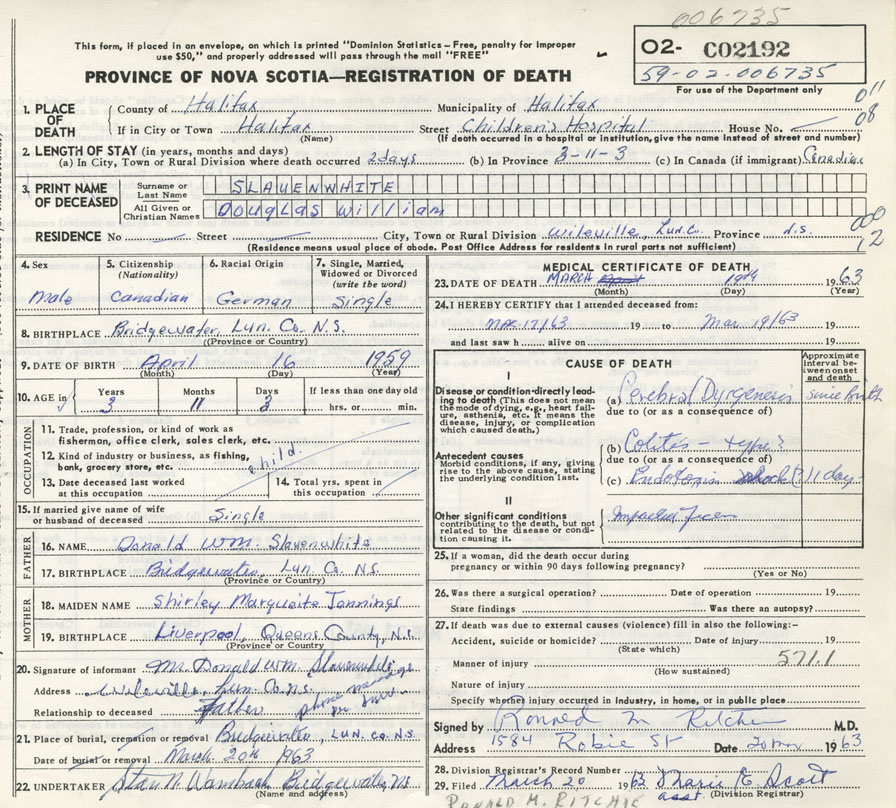 006735
This form, if placed in an envelope, on which is printed "Dominion Statistics - Free, penalty for improper
use $50," and properly addressed will pass through the mail "FREE"
PROVINCE OF NOVA SCOTIA—REGISTRATION OF DEATH
02- C02192
59-02-006735
For use of the Department only
011
08
1. PLACE OF DEATH County of Halifax Municipality of Halifax
If in City or Town Halifax Street Children's Hospital House No.
(Name) (If death occurred in a hospital or institution, give the name instead of street and number)
2. LENGTH OF STAY (in years, months and days)
(a) In City, Town or Rural Division where death occurred 2 days (b) In Province 3-11-3 (c) In Canada (if immigrant) Canadian
3. PRINT NAME OF DECEASED Surname or Last Name SLAUENWHITE
All Given or Christian Names Douglas William
000
12
RESIDENCE No Street City, Town or Rural Division Wileville, Lun. Co. Province N.S.
(Residence means usual place of abode. Post Office Address for residents in rural parts not sufficient)
4. Sex 5. Citizenship (Nationality) 6. Racial Origin 7. Single, Married, Widowed or Divorced (write the word)
Male Canadian German Single
8. BIRTHPLACE Bridgewater, Lun. Co. N.S.
(Province or Country)
9. DATE OF BIRTH April 16 1959
(Month) (Day) (Year)
10. AGE in Years Months Days If less than one day old
3 11 3 hrs. or min.
OCCUPATION
11. Trade, profession, or kind of work as
fisherman, office clerk, sales clerk, etc.
12. Kind of industry or business, as fishing,
bank, grocery store, etc. child.
13. Date deceased last worked
at this occupation
14. Total yrs. spent in
this occupation
15. If married give name of wife
or husband of deceased Single
FATHER
16. NAME Donald Wm. Slauenwhite
17. BIRTHPLACE Bridgewater, Lun. Co. N.S.
(Province or Country)
MOTHER
18. MAIDEN NAME Shirley Marguerite Jennings
19. BIRTHPLACE Liverpool, Queens County, N.S.
(Province or Country)
20. Signature of informant Mr. Donald Wm. Slauenwhite
Address Wileville, Lun. Co. N.S.
Relationship to deceased Father phone message
21. Place of burial, cremation or removal Bridgewater, LUN. CO. N.S
Date of burial or removal March 20th 1963
22. UNDERTAKER Bridgewater, N.S.
(Name and address)
MEDICAL CERTIFICATE OF DEATH
23. DATE OF DEATH MARCH 19th 1963
(Month) (Day) (Year)
24. I HEREBY CERTIFY that I attended deceased from:
Mar 17/63 19 to Mar 19/63 19
and last saw h alive on 19
CAUSE OF DEATH
Approximate interval between onset and death
I
Disease or condition directly leading to death (This does not mean the mode of dying, e.g., heart failure, asthenia, etc. It means the disease, injury, or complication which caused death.)
(a) Cerebral Dysgenesis Since Birth
due to (or as a consequence of)
Antecedent causes
Morbid conditions, if any, giving rise to the above cause, stating the underlying condition last.
(b) Colitis - type?
due to (or as a consequence of)
(c) Endotoxin shock (?) 11 days
II
Other significant conditions
contributing to the death, but not related to the disease or condition causing it.
Impacted
25. If a woman, did the death occur during
pregnancy or within 90 days following pregnancy?
(Yes or No)
26. Was there a surgical operation? Date of operation 19
State findings Was there an autopsy?
27. If death was due to external causes (violence) fill in also the following:-
Accident, suicide or homicide? Date of injury 19
(State which)
Manner of injury 571.1
(How sustained)
Nature of injury
Specify whether injury occurred in industry, in home, or in public place
Signed by Ronald M Ritchie M.D.
Address 1584 Robie St Date 20 Mar 1963
28. Division Registrar's Record Number
29. Filed March 20 1963 Marie E. Scott
asst. (Division Registrar)
RONALD M. RITCHIE